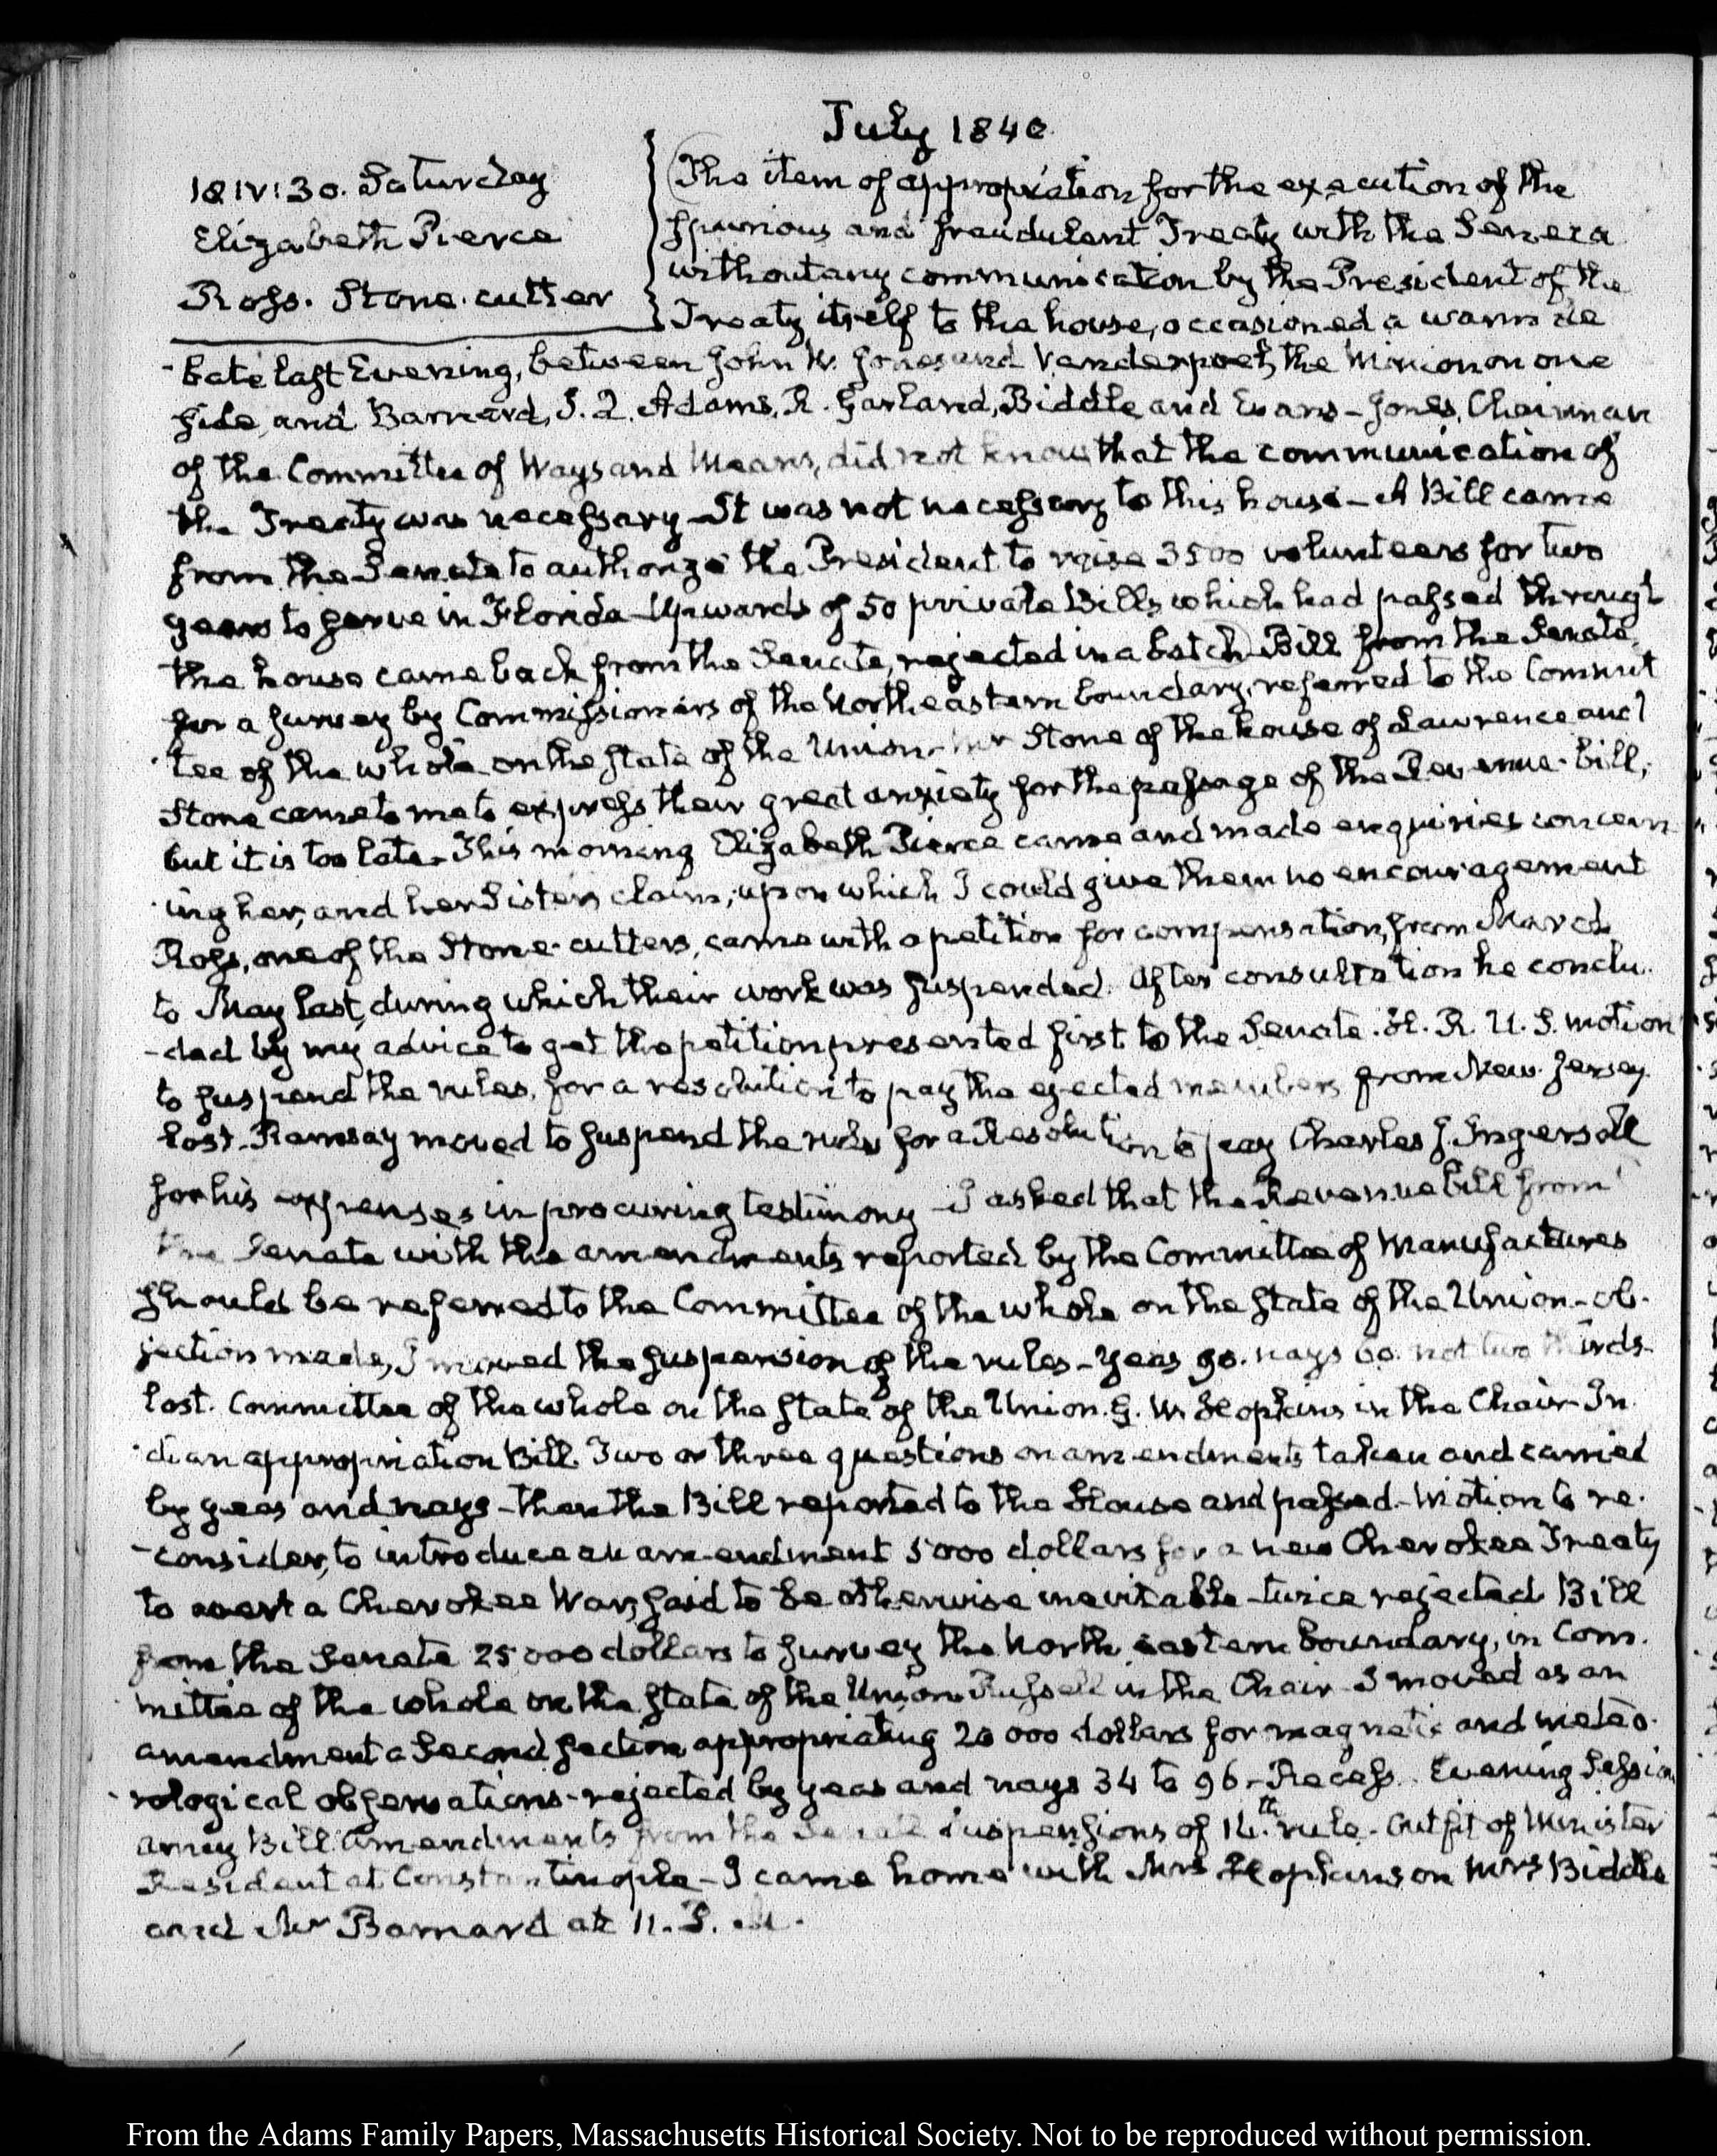 July 1840
18 IV:30. Saturday
Elizabeth Pierce
Ross. Stone-cutter
The item of appropriation for the execution of the
spurious and fraudulent Treaty with the Seneca
without any communication by the President of the
Treaty itself to the house, occasioned a warm de
-bate last Evening, between John W. Jones and Vanderpoel, the Minion on one
side, and Barnard, J. Q. Adams, R. Garland, Biddle and Evans - Jones, Chairman
of the Committee of Ways and Means, did not know that the communication of
the Treaty was necessary - It was not necessary to this house - A Bill came
from the Senate to authorize the President to raise 3500 volunteers for two
years to serve in Florida - Upwards of 50 private Bills which had passed through
the house came back from the Senate, rejected in a batch - Bill from the Senate
for a survey by Commissioners of the Northeastern boundary, referred to the Commit
-tee of the whole on the state of the Union - Mr Stone of the house of Lawrence and
Stone came to me to express their great anxiety for the passage of the Revenue-bill,
but it is too late. This morning Elizabeth Pierce came and made enquiries concern
-ing her, and her Sister's claim; upon which I could give them no encouragement
Ross, one of the Stone-cutters, came with a petition for compensation, from March
to May last, during which their work was suspended. After consultation he conclu-
-ded by my advice to get the petition presented first to the Senate. H. R. U. S. motion
to suspend the rules, for a resolution to pay the ejected members from New-Jersey.
lost. Ramsay moved to suspend the rules for a Resolution to pay Charles J. Ingersoll
for his expenses in procuring testimony - I asked that the Revenue bill from
the Senate with the amendments reported by the Committee of Manufactures
should be referred to the Committee of the whole on the state of the Union - ob-
jection made, I moved the suspension of the rules - Yeas 90. nays 60. not two thirds-
lost. Committee of the whole on the state of the Union. G. W. Hopkins in the Chair - In
-dian appropriation Bill. Two or three questions on amendments taken and carried
by yeas and nays - then the Bill reported to the House and passed - Motion to re-
-consider, to introduce an amendment 5000 dollars for a new Cherokee Treaty
to avert a Cherokee War, said to be otherwise inevitable - twice rejected Bill
from the Senate 25000 dollars to survey the North eastern boundary, in Com-
mittee of the whole on the state of the Union. Russell in the Chair - I moved as an
amendment a Second section appropriating 20 000 dollars for magnetic and meteo-
-rological observations - rejected by yeas and nays 34 to 96 - Recess. Evening Session
army Bill amendments from the Senate suspensions of 16.th rule - Outfit of Minister
Resident at Constantinople - I came home with Mrs Hopkinson Mrs Biddle
and Mr Barnard at 11. P. M.
From the Adams Family Papers, Massachusetts Historical Society. Not to be reproduced without permission.